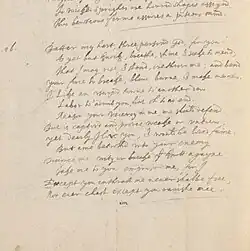 To wicked sprights are horrid shapes assign'd
This beauteous forme assures a piteous mind.
16.
Batter my hart, three person'd God, for you
As yet but knock, breathe, shine & seeke to mend
That I may rise, & stand, orethrow me, and bend
Your force to breake, blowe, burne, & make me new.
I like an usurpt towne to another dew
Labor to admit you, but Oh to no end
Reason your viceroy in me, me should defend
But is captiv'd and proves weake or untrew
Yet dearly I love you, & would be lov'd faine
But ame betroth'd unto your enemy
Divorce me, unty or breake that knot agayne
Take me to you, emprison me, for I
Except you enthrall me never shall be free
Nor ever chast except you ravishe mee.